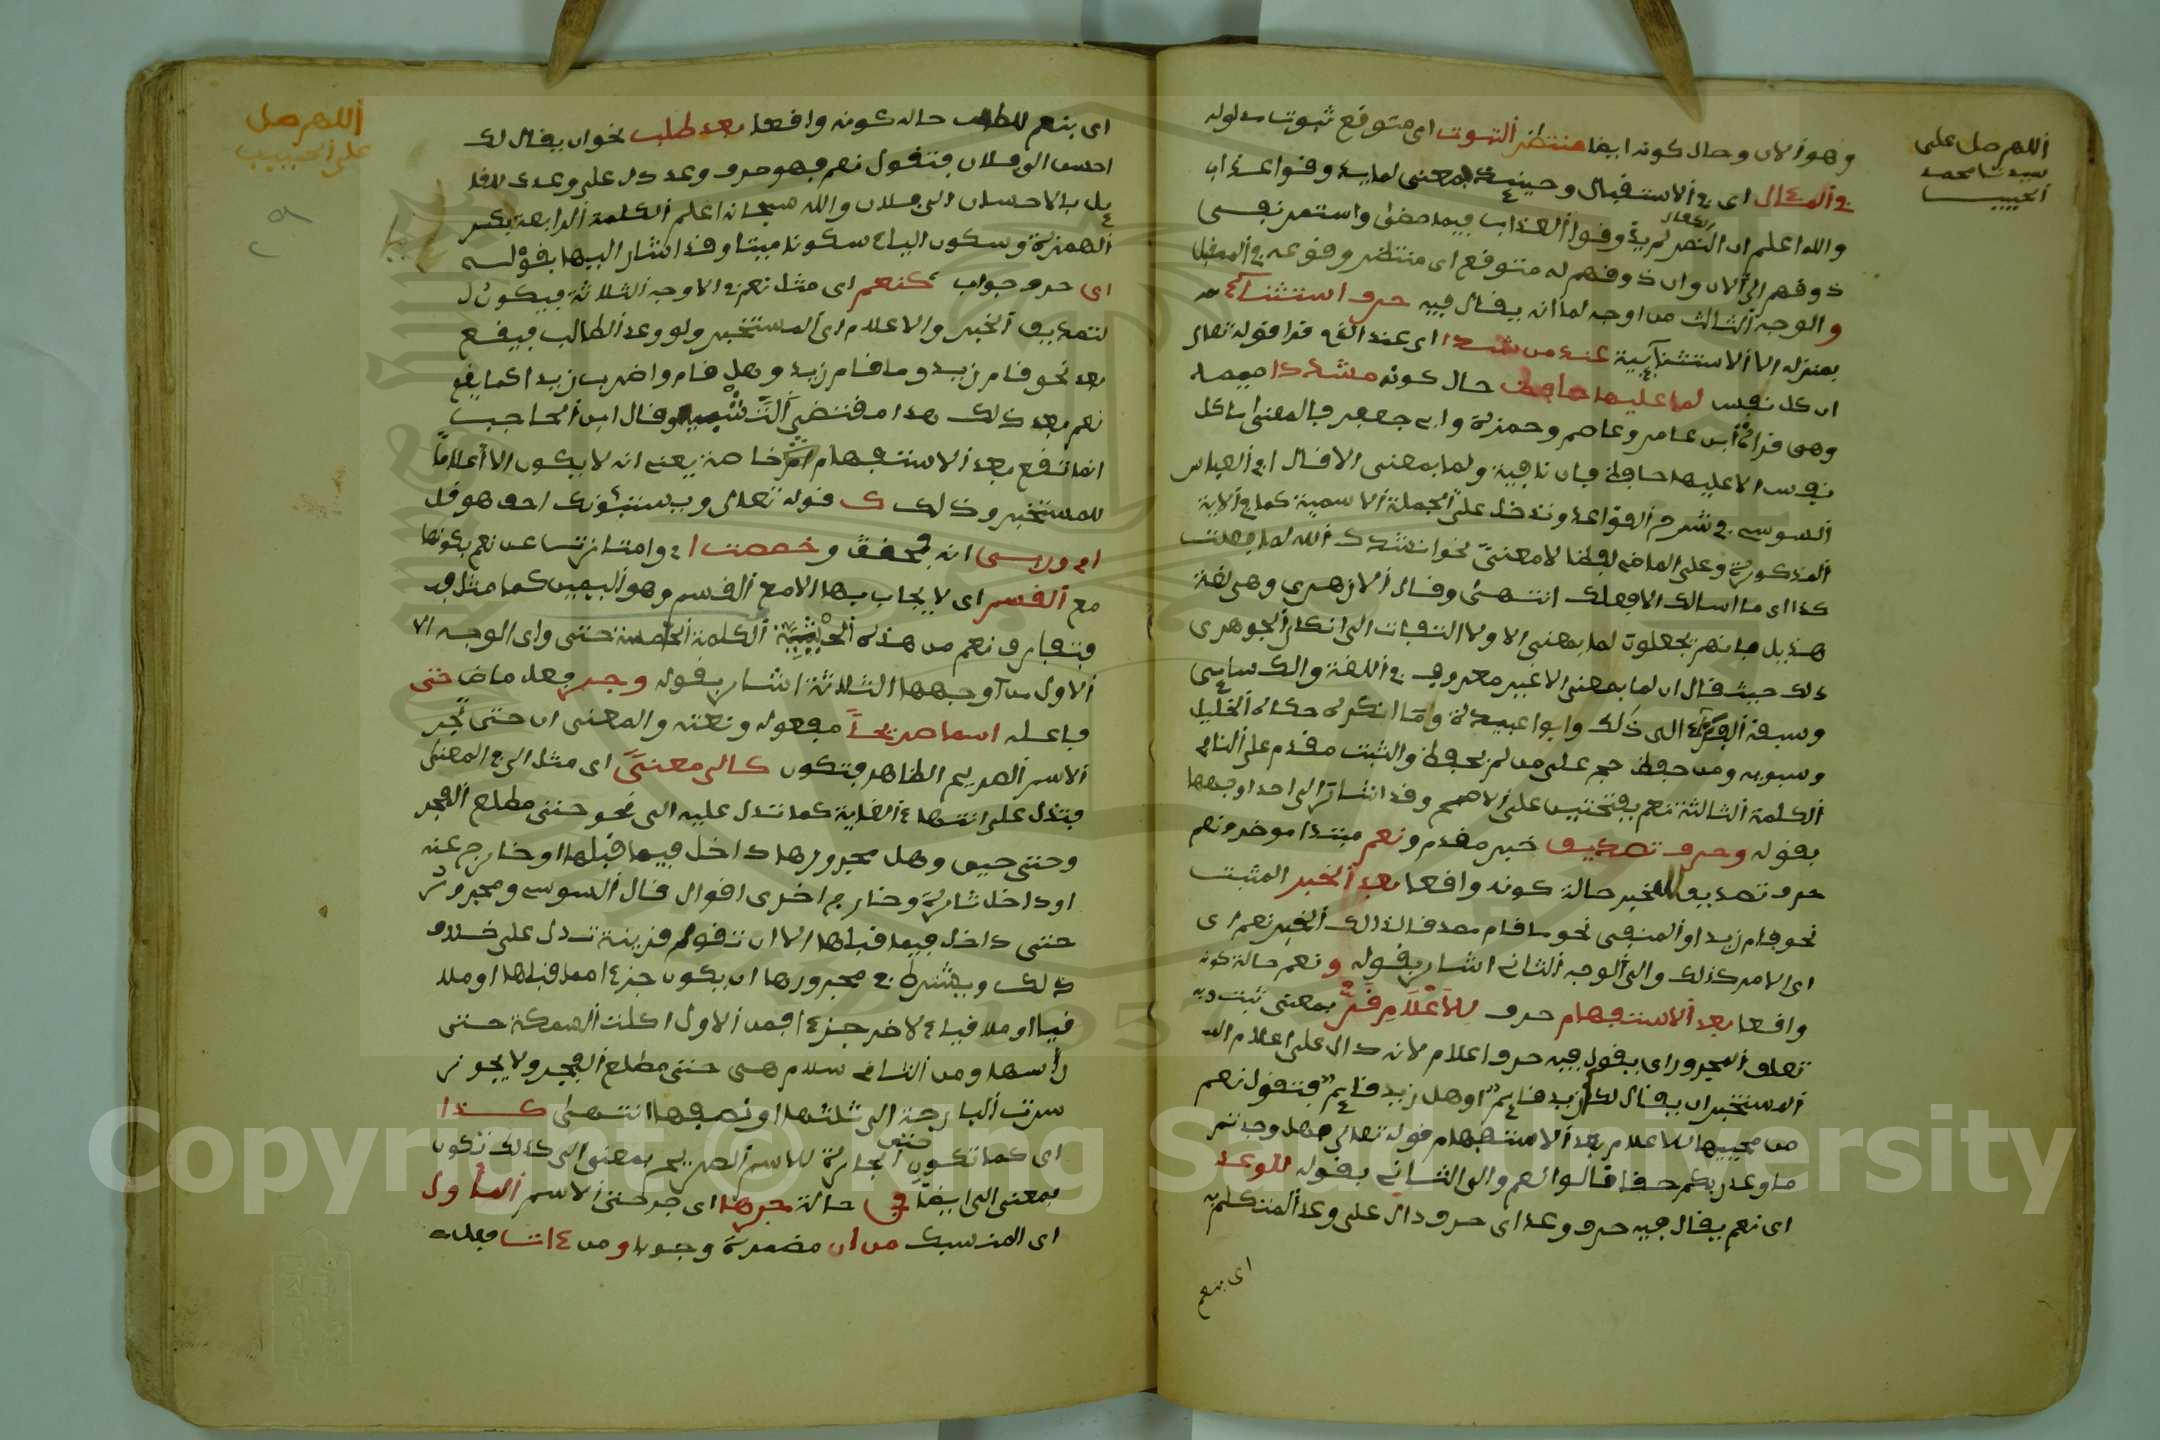 اللهم صل على
سيدنا محمد
الحبيب
وهو ألان وحال كونه ايضا منتظر الثبوت اى متوقع ثبوت مدلوله
في المئال اى في الاستقبال وحينئذ فمعنى لما يذوقوا عذاب
والله اعلم ان الكفار لم يذوقوا العذاب فيما مضى واستمر نفي
ذوقهم إلى الان وان ذوقهم له متوقع اى منتظر وقوعه في المستقبل
والوجه الثالث من اوجه لما انه يقال فيه حرف استثناء
بمنزلة الا الاستثنائية عند من شددا اى عند الذي قرا قوله تعالى
ان كل نفس لما عليها حافظ حال كونه مشددا ميمه
وهي قراءة ابن عامر وعاصم وحمزة وابى جعفر فالمعنى ما كل
نفس الا عليها حافظ فان نافية ولما بمعنى الا قال ابو العباس
السوسي في شرح القواعد وتدخل على الجملة الاسمية كما في الاية
المذكورة وعلى الماضي لفظا لا معنى نحو انشدك الله لما فعلت
كذا اى ما اسالك الا فعلك انتهى وقال الازهري وهي لغة
هذيل فانهم يجعلون لما بمعنى الا ولا التفات الى انكار الجوهرى
ذلك حيث قال ان لما بمعنى الا غير معروف في اللغة والكسائي
وسبقه الفراء الى ذلك وابوا عبيدة وما انكره حكاه الخليل
وسبويه ومن حفظ حجم على من لم يحفظ والمثبت مقدم على النافي
الكلمة الثالثة نعم بفتحتين على الاصح وقد اشار الى احد اوجهها
بقوله وحرف تصديق خبر مقدم ونعم مبتدا موخر ونعم
حرف تصديق للمخبر حالة كونه واقعا بعد الخبر المثبت
نحو قام زيد او المنفي نحو ما قام بعد قالة ذالك الخبر نعم اى
اى الامر كذلك والى الوجه الثاني اشار بقوله ونعم حالة كونه
واقعا بعد الاستفهام حرف للاعلام قر بمعنى ثبت وبه
تعلق المجرور اى يقول فيه حرف اعلام لانه دال على اعلام
المستخبر ان يقال لك ازيد قائم او هل زيد قائم فتقول نعم
من مجيبها للاعلام بعد الاستفهام قوله تعالى فهل وجدتم
ما وعد ربكم حقا قالوا نعم والى الثالث بقوله للوعد
اى نعم يقال فيه حرف وعد اى حرف دال على وعد المتكلم به
اى بنعم
اللهم صل
على الحبيب
اى بنعم للطالب حاله كونه واقعا بعد طلب نحو ان يقال لك
احسن الى فلان فتقول نعم فهو حرف وعد دال على وعدك
بالاحسان الى فلان والله سبحانه اعلم الكلمة الرابعة بكسر
الهمزة وسكون الياء سكونا ميتا وقد اشار اليها بقوله
اى حرف جواب كنعم اى مثل نعم في الاوجه الثلاثة فيكون
لتصديق الخبر والاعلام اى المستخبر ولوعد الطالب فيقع
بعد نحو قام زيد وما قام زيد وهل قام واضرب زيدا كما يقع
نعم بعد ذلك هذا مقتضى التشبيه وقال ابن الحاجب
انما تقع بعد الاستفهام خاصة يعنى انه لا يكون الا اعلاما
للمستخبر وذلك ك قوله تعالى ويستنبؤنك احق هو قل
اى وربى انه محقق وخصصت اى وامتازت عن نعم بكونها
مع القسم اى لا يجاب بها الا مع القسم وهو اليمين كما مثل به
فتفارق نعم من هذه الحيثية الكلمة الخامسة حتى واى الوجه الا
الاول من اوجهها الثلاثة اشار بقوله وجر فعل ماض حتى
فاعله اسما صريحا مفعوله ونعته والمعنى ان حتى تجر
الاسم الصريح الظاهر فتكون كالى معنى اى مثل الى في المعنى
فتدل على انتهاء الغاية كما تدل عليه الى نحو حتى مطلع الفجر
وحتى حين وهل مجرورها داخل فيما قبلها او خارج عنه
او داخل تارة وخارج اخرى اقوال قال السوسي ومجرور
حتى داخل فيما قبلها الا ان تقوم قرينة تدل على خلاف
ذلك ويشترط في مجرورها ان يكون جزءا مما قبلها او ملا
قيا او ملاقياء لاخر جزء فمن الاول اكلت السمكة حتى
رأسها ومن الثاني سلام هي حتى مطلع الفجر ولا يجوز
سرت البارحة الى ثلثها او نصفها انتهى كذا
اى كما تكون حتى الجارة للاسم الصريح بمعنى الى كذلك تكون
بمعنى الى ايضا في حالة جرها اى جر حتى الاسم المأول
اى المنسبك من ان مضمرة وجوبا ومن
Copyright © King Saud University